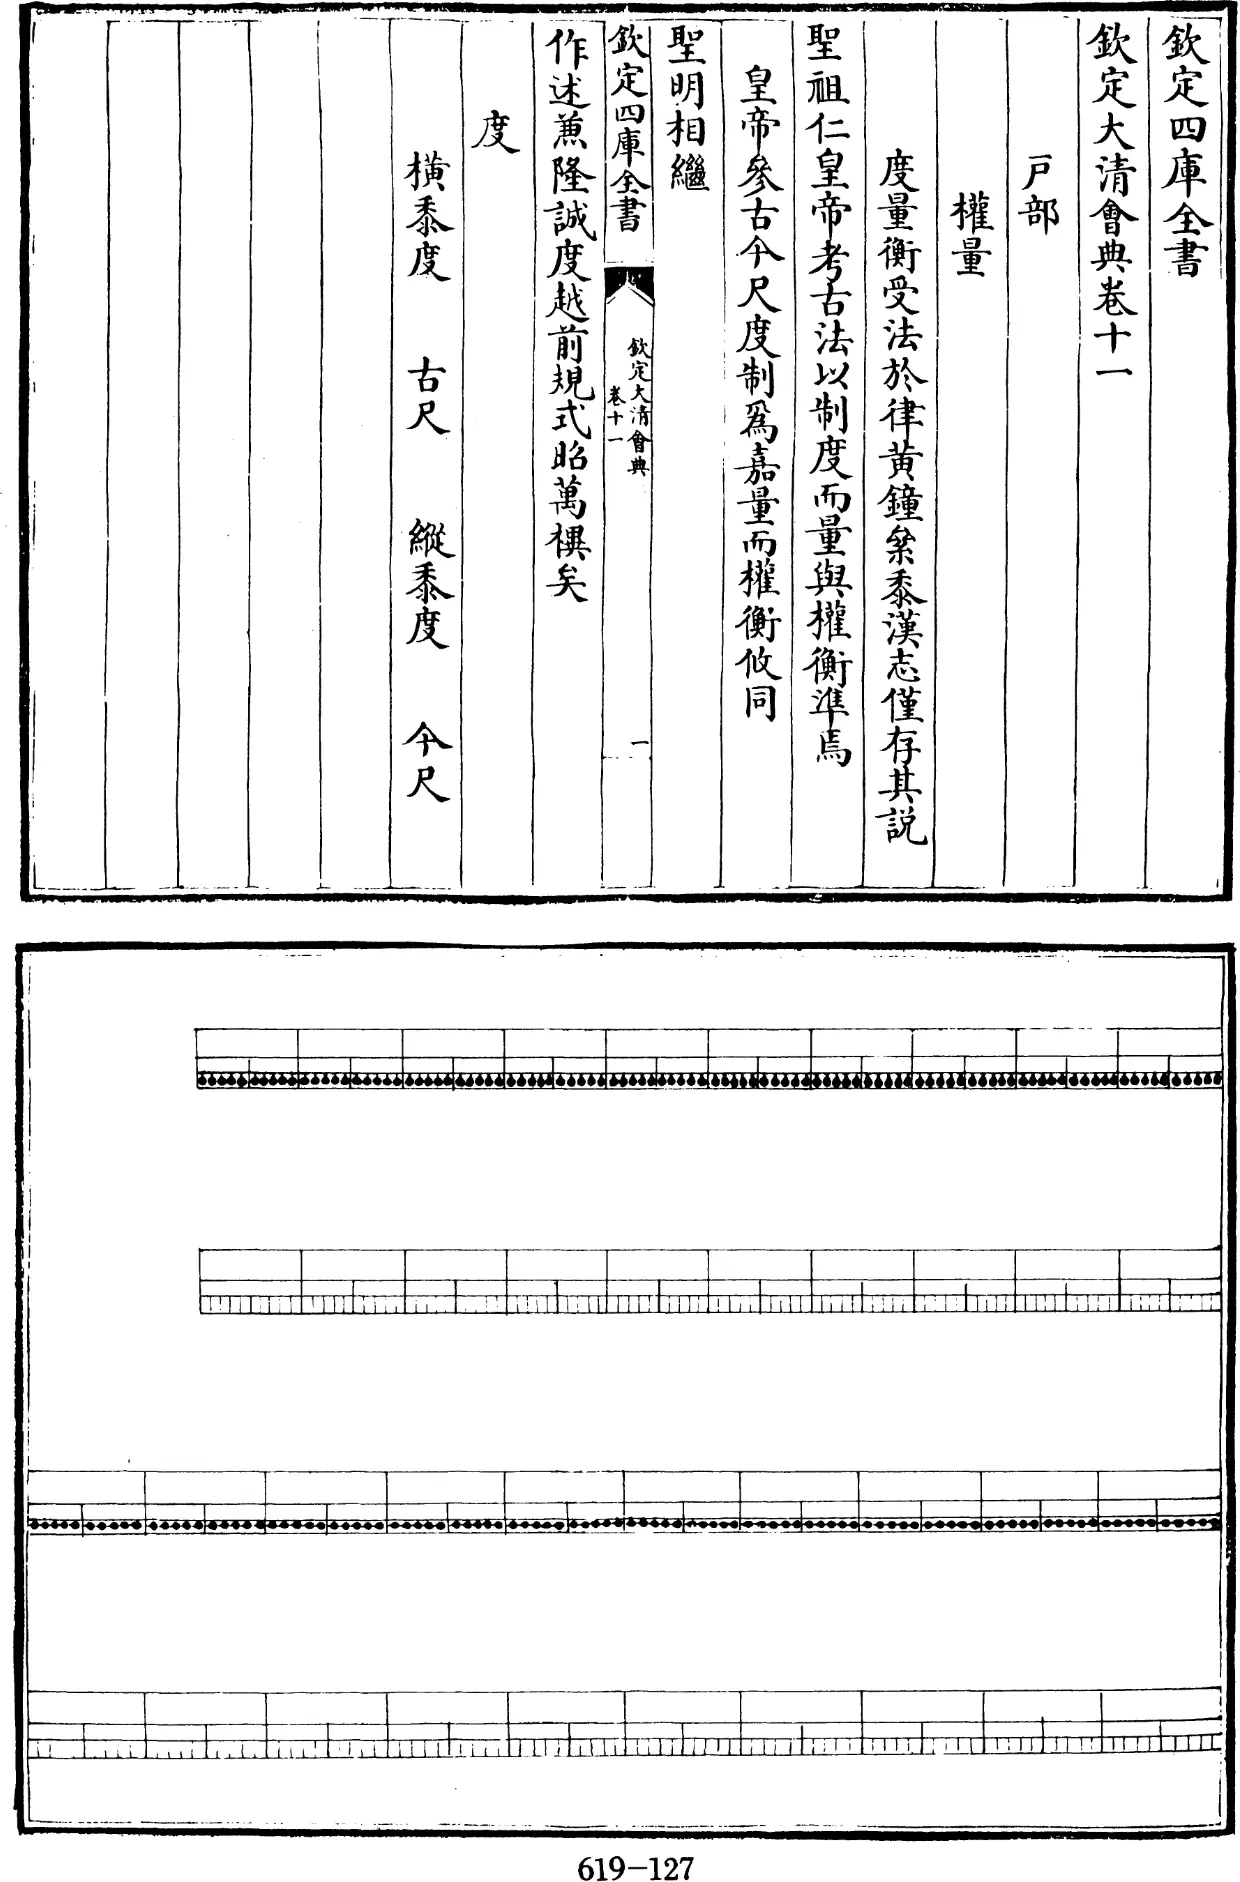 欽定四庫全書
欽定大清會典卷十一
戸部
權量
度量衡受法於律黄鐘絫黍漢志僅存其説
聖祖仁皇帝考古法以制度而量與權衡準焉
皇帝參古今尺度制爲嘉量而權衡攸同
聖明相繼
欽定四庫全書
欽定大清會典
卷十一
一
作述兼隆誠度越前規式昭萬禩矣
度
橫黍度 古尺 縱黍度 今尺
619-127